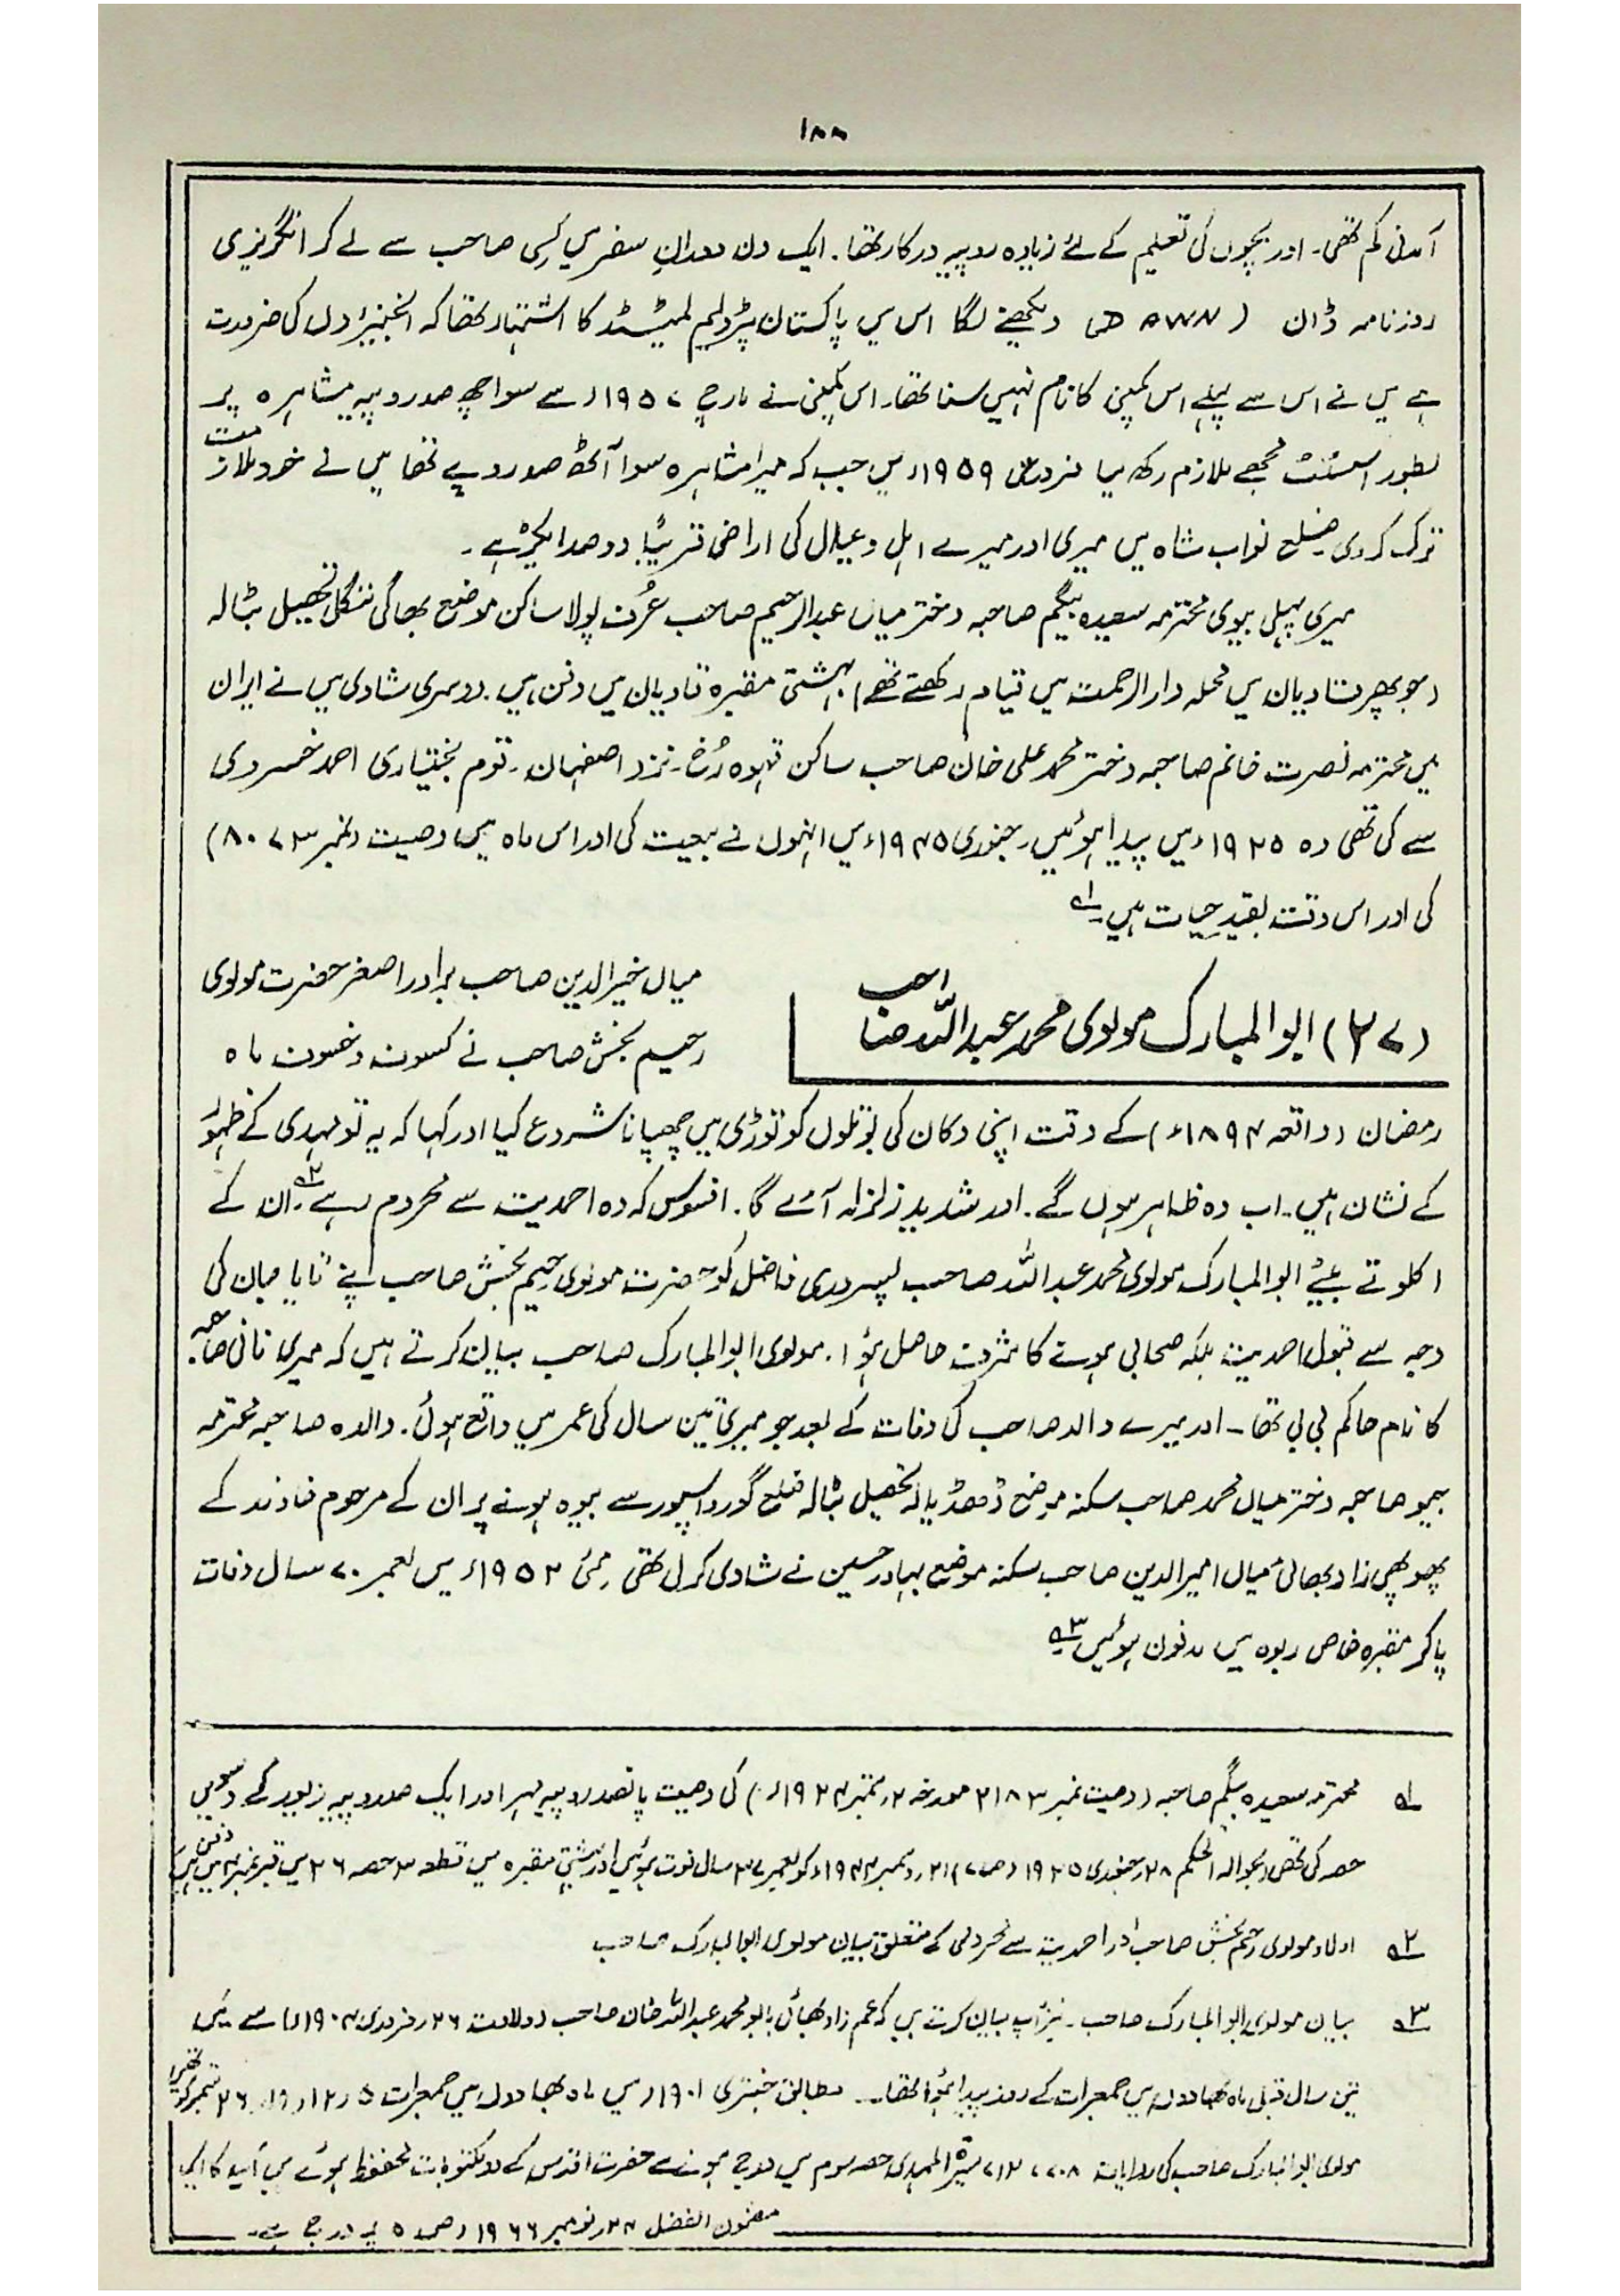 ۱۸۸
آمدنی کم تھی۔ اور بچوں کی تعلیم کے لئے زیادہ روپیہ درکار تھا۔ ایک دن دورانِ سفر میں کسی صاحب سے لے کر انگریزی
روزنامہ ڈان (DAWN) دیکھنے لگا اس میں پاکستان پٹرولیم لمیٹڈ کا اشتہار تھا کہ انجنیئروں کی ضرورت
ہے میں نے اس سے پہلے اس کمپنی کا نام نہیں سنا تھا۔ اس کمپنی نے مارچ ۱۹۵۷ء سے سوا چھ صد روپیہ مشاہرہ پر
بطور اسسٹنٹ مجھے ملازم رکھ لیا فروری ۱۹۵۹ء میں جب کہ میرا مشاہرہ سوا آٹھ صد روپے تھا میں نے خود ملازمت
ترک کر دی۔ ضلع نواب شاہ میں میری اور میرے اہل و عیال کی اراضی قریباً دو صد ایکڑ ہے۔
میری پہلی بیوی محترمہ سعیدہ بیگم صاحبہ دختر میاں عبدالرحیم صاحب عُرف پولا ساکن موضع بھاگی ننگل تحصیل بٹالہ
(جو پھر قادیان میں محلہ دارالرحمت میں قیام رکھتے تھے) بہشتی مقبرہ قادیان میں دفن ہیں۔ دوسری شادی میں نے ایران
میں محترمہ نصرت خانم صاحبہ دختر محمد علی خان صاحب ساکن قہوہ رُخ۔ نزد اصفہان۔ قوم بختیاری احمد خسروی
سے کی تھی وہ ۱۹۲۵ء میں پیدا ہوئیں۔ جنوری ۱۹۴۵ء میں انہوں نے بیعت کی اور اس ماہ میں وصیت (نمبر ۸۰۷۳)
کی اور اس وقت بقیدِ حیات ہیں۔ ۱؎
(۲۷) ابوالمبارک مولوی محمد عبداللہ صاحب
میاں خیرالدین صاحب برادر اصغر حضرت مولوی
رحیم بخش صاحب نے کسوف و خسوف ماہ
رمضان (واقعہ ۱۸۹۴ء) کے وقت اپنی دکان کی بوتلوں کو توڑی میں چھپانا شروع کیا اور کہا کہ یہ تو مہدی کے ظہور
کے نشان ہیں۔ اب وہ ظاہر ہوں گے۔ اور شدید زلزلہ آئے گا۔ افسوس کہ وہ احمدیت سے محروم رہے ۲؎۔ ان کے
اکلوتے بیٹے ابوالمبارک مولوی محمد عبداللہ صاحب پسروری فاضل کو حضرت مولوی رحیم بخش صاحب اپنے تایا میاں کی
وجہ سے قبول احمدیت بلکہ صحابی ہونے کا شرف حاصل ہؤا۔ مولوی ابوالمبارک صاحب بیان کرتے ہیں کہ میری نانی صاحبہ
کا نام حاکم بی بی تھا۔ اور میرے والد صاحب کی وفات کے بعد جو میری تین سال کی عمر میں واقع ہوئی۔ والدہ صاحبہ محترمہ
جیو صاحبہ دختر میاں محمد صاحب سکنہ موضع تحصیل بٹالہ ضلع گورداسپور سے بیوہ ہونے پر ان کے مرحوم خاوند کے
پھوپھی زاد بھائی میاں امیرالدین صاحب سکنہ موضع بہادر حسین نے شادی کر لی تھی۔ مئی ۱۹۵۲ء میں بعمر ۷۰ سال وفات
پا کر مقبرہ خاص ربوہ میں مدفون ہوئیں ۳؎
۱؎ محترمہ سعیدہ بیگم صاحبہ (وصیت نمبر ۲۱۸۳ مورخہ ۲ ستمبر ۱۹۲۴ء) کی وصیت پانصد روپیہ مہر اور ایک صد روپیہ زیور کے دسویں
حصہ کی تھی (بحوالہ الحکم ۲۸ جنوری ۱۹۲۵ ص۷) ۲۱ دسمبر ۱۹۴۴ء کو بعمر ۳۷ سال فوت ہوئیں اور بہشتی مقبرہ میں قطعہ ۳ حصہ ۲۶ میں قبر نمبر ۴ میں دفن ہیں
۲؎ اولاد مولوی رحیم بخش صاحب اور احمدیت سے محرومی کے متعلق بیان مولوی ابوالمبارک صاحب
۳؎ بیان مولوی ابوالمبارک صاحب۔ نیز آپ بیان کرتے ہیں کہ عم زاد بھائی بابو محمد عبداللہ خان صاحب (ولادت ۲۶ فروری ۱۹۰۴ء) سے میں
تین سال قبل ماہ بھادوں میں جمعرات کے روز پیدا ہؤا تھا۔ مطابق جنتری ۱۹۰۱ء میں ماہ بھادوں میں جمعرات ۵، ۱۲، ۱۹، ۲۶ ستمبر کو تھی
مولوی ابوالمبارک صاحب کی روایات ۷۰۸، ۷۱۲ سیرۃ المہدی حصہ سوم میں درج ہونے سے حضرت اقدس کے دو مکتوبات محفوظ ہوئے ہیں آپ کا ایک
مضمون الفضل ۲۴ نومبر ۱۹۶۶ء ص۵ پر درج ہے۔